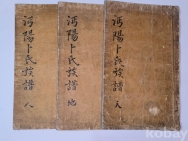 沔陽卜氏族譜 人
沔陽卜氏族譜 地
沔陽卜氏族譜 天
kobay